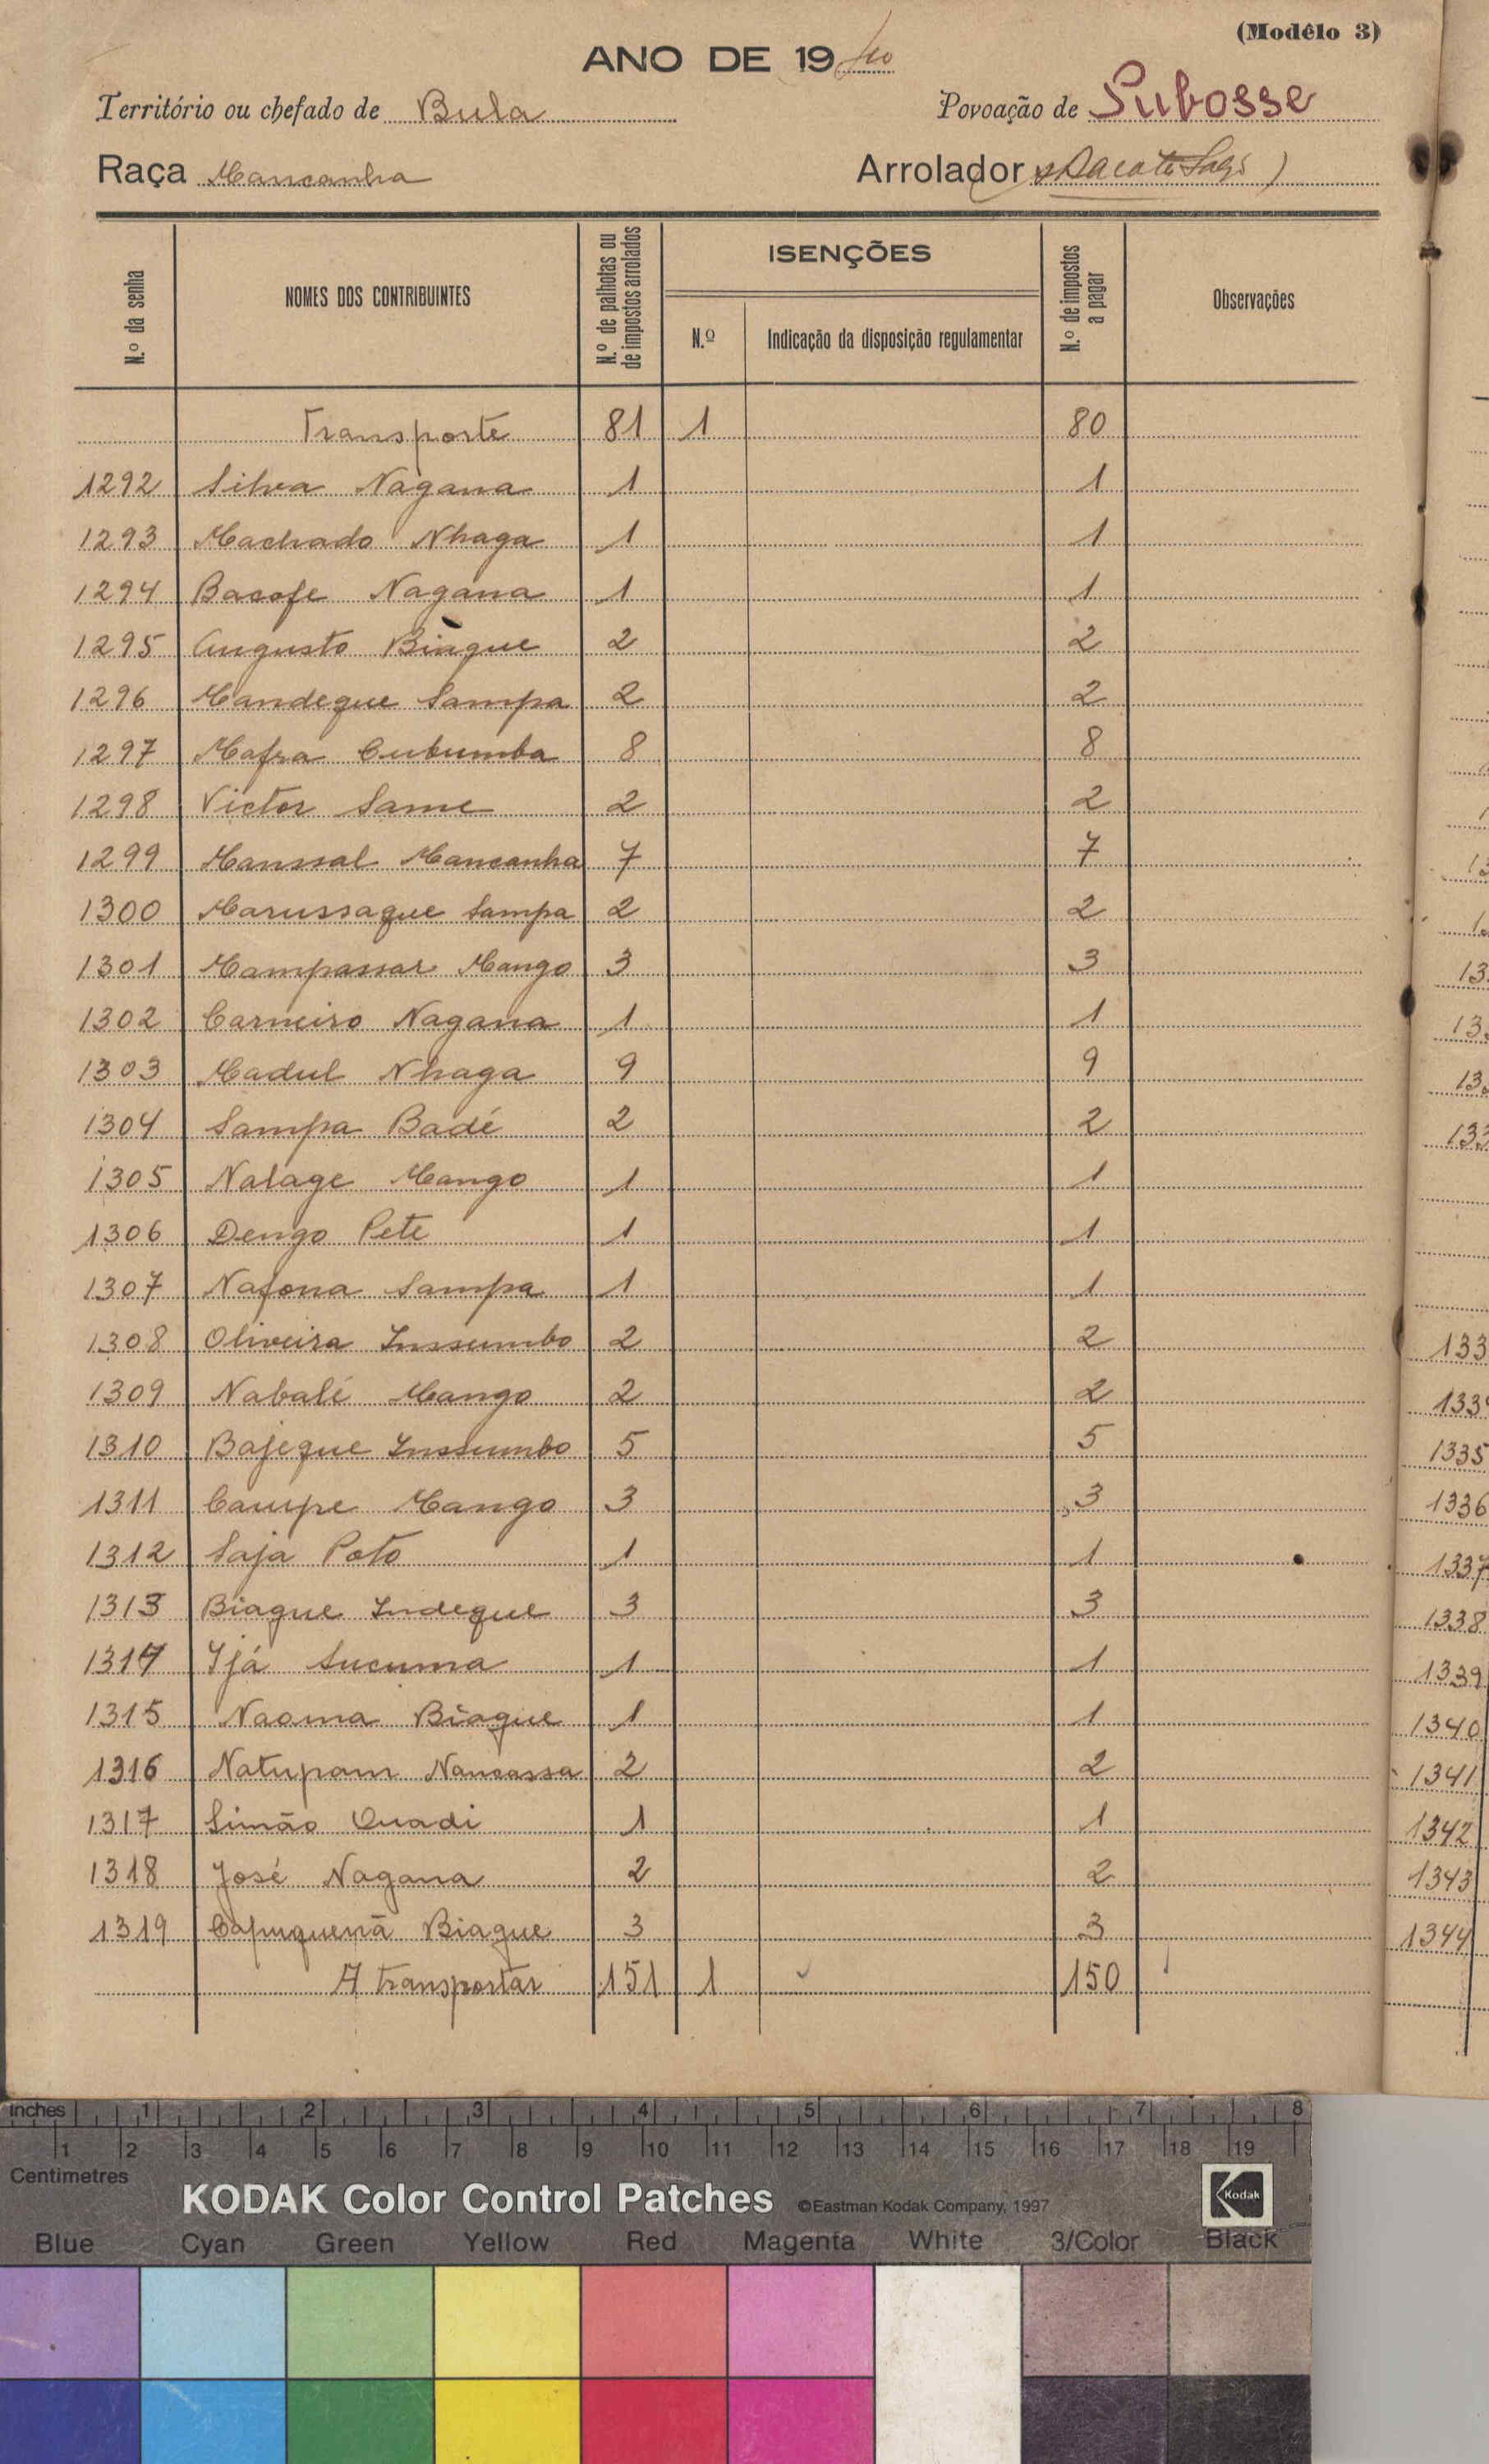 (Modêlo 3)
ANO DE 19 40
Território ou chefado de Bula Povoação de Pubosse
Raça Mancanha Arrolador
N.º da senha NOMES DOS CONTRIBUINTES N.º de palhotas ou de impostos arrolados ISENÇÕES N.º de impostos a pagar Observações
N.º Indicação da disposição regulamentar
Transporte 81 1 80
1292 Silva Nagana 1 1
1293 Machado Nhaga 1 1
1294 Bacofe Nagana 1 1
1295 Augusto Biague 2 2
1296 Mandeque Sampa 2 2
1297 Mafra Cubumba 8 8
1298 Victor Same 2 2
1299 Manssal Mancanha 7 7
1300 Marussaque Sampa 2 2
1301 Mampassar Mango 3 3
1302 Carneiro Nagana 1 1
1303 Madul Nhaga 9 9
1304 Sampa Badé 2 2
1305 Nalage Mango 1 1
1306 Dengo Pete 1 1
1307 Nafona Sampa 1 1
1308 Oliveira Insumbo 2 2
1309 Nabalé Mango 2 2
1310 Bajeque Inssumbo 5 5
1311 Campe Mango 3 3
1312 Saja Poto 1 1
1313 Biague Indeque 3 3
1314 Ijá Sucuma 1 1
1315 Naoma Biague 1 1
1316 Natupam Nancassa 2 2
1317 Simão Quadi 1 1
1318 José Nagana 2 2
1319 Biague 3 3
A transportar 151 1 150
133
133
1335
1336
1337
1338
1339
1340
1341
1342
1343
1344
inches 1 2 3 4 5 6 7 8
1 2 3 4 5 6 7 8 9 10 11 12 13 14 15 16 17 18 19
Centimetres
KODAK Color Control Patches ©Eastman Kodak Company, 1997 Kodak
Blue Cyan Green Yellow Red Magenta White 3/Color Black